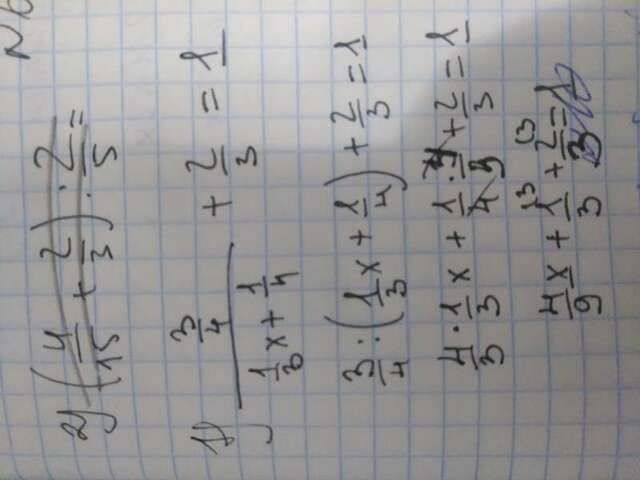 N 6
2) (4/15 + 2/3) · 2/5 =
1) (3/4)/(1/3 x + 1/4) + 2/3 = 1
3/4 : (1/3 x + 1/4) + 2/3 = 1
4/3 · 1/3 x + 1/4 · 4/3 + 2/3 = 1
4/9 x + 1/3 + 2/3 = 1